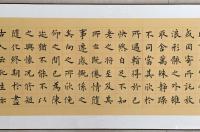 或因寄所託放
浪形骸之外雖
取舍萬殊靜躁
不同當其欣於
所遇暫得於己
快然自足不知
老之將至及其
所之既倦情隨
事遷感慨係之
矣向之所欣俛
仰之間以為陳
迹猶不能不以
之興懷況脩短
隨化終期於盡
古人云死生亦